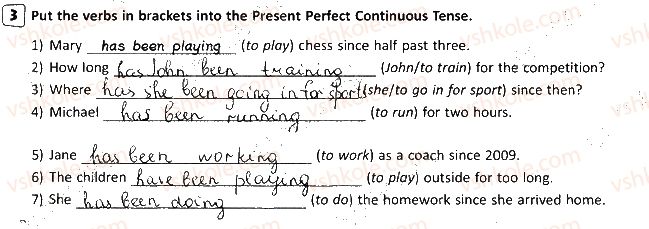 3 Put the verbs in brackets into the Present Perfect Continuous Tense.
1) Mary has been playing (to play) chess since half past three.
2) How long has John been training (John/to train) for the competition?
3) Where has she been going in for sport (she/to go in for sport) since then?
4) Michael has been running (to run) for two hours.
5) Jane has been working (to work) as a coach since 2009.
6) The children have been playing (to play) outside for too long.
7) She has been doing (to do) the homework since she arrived home.